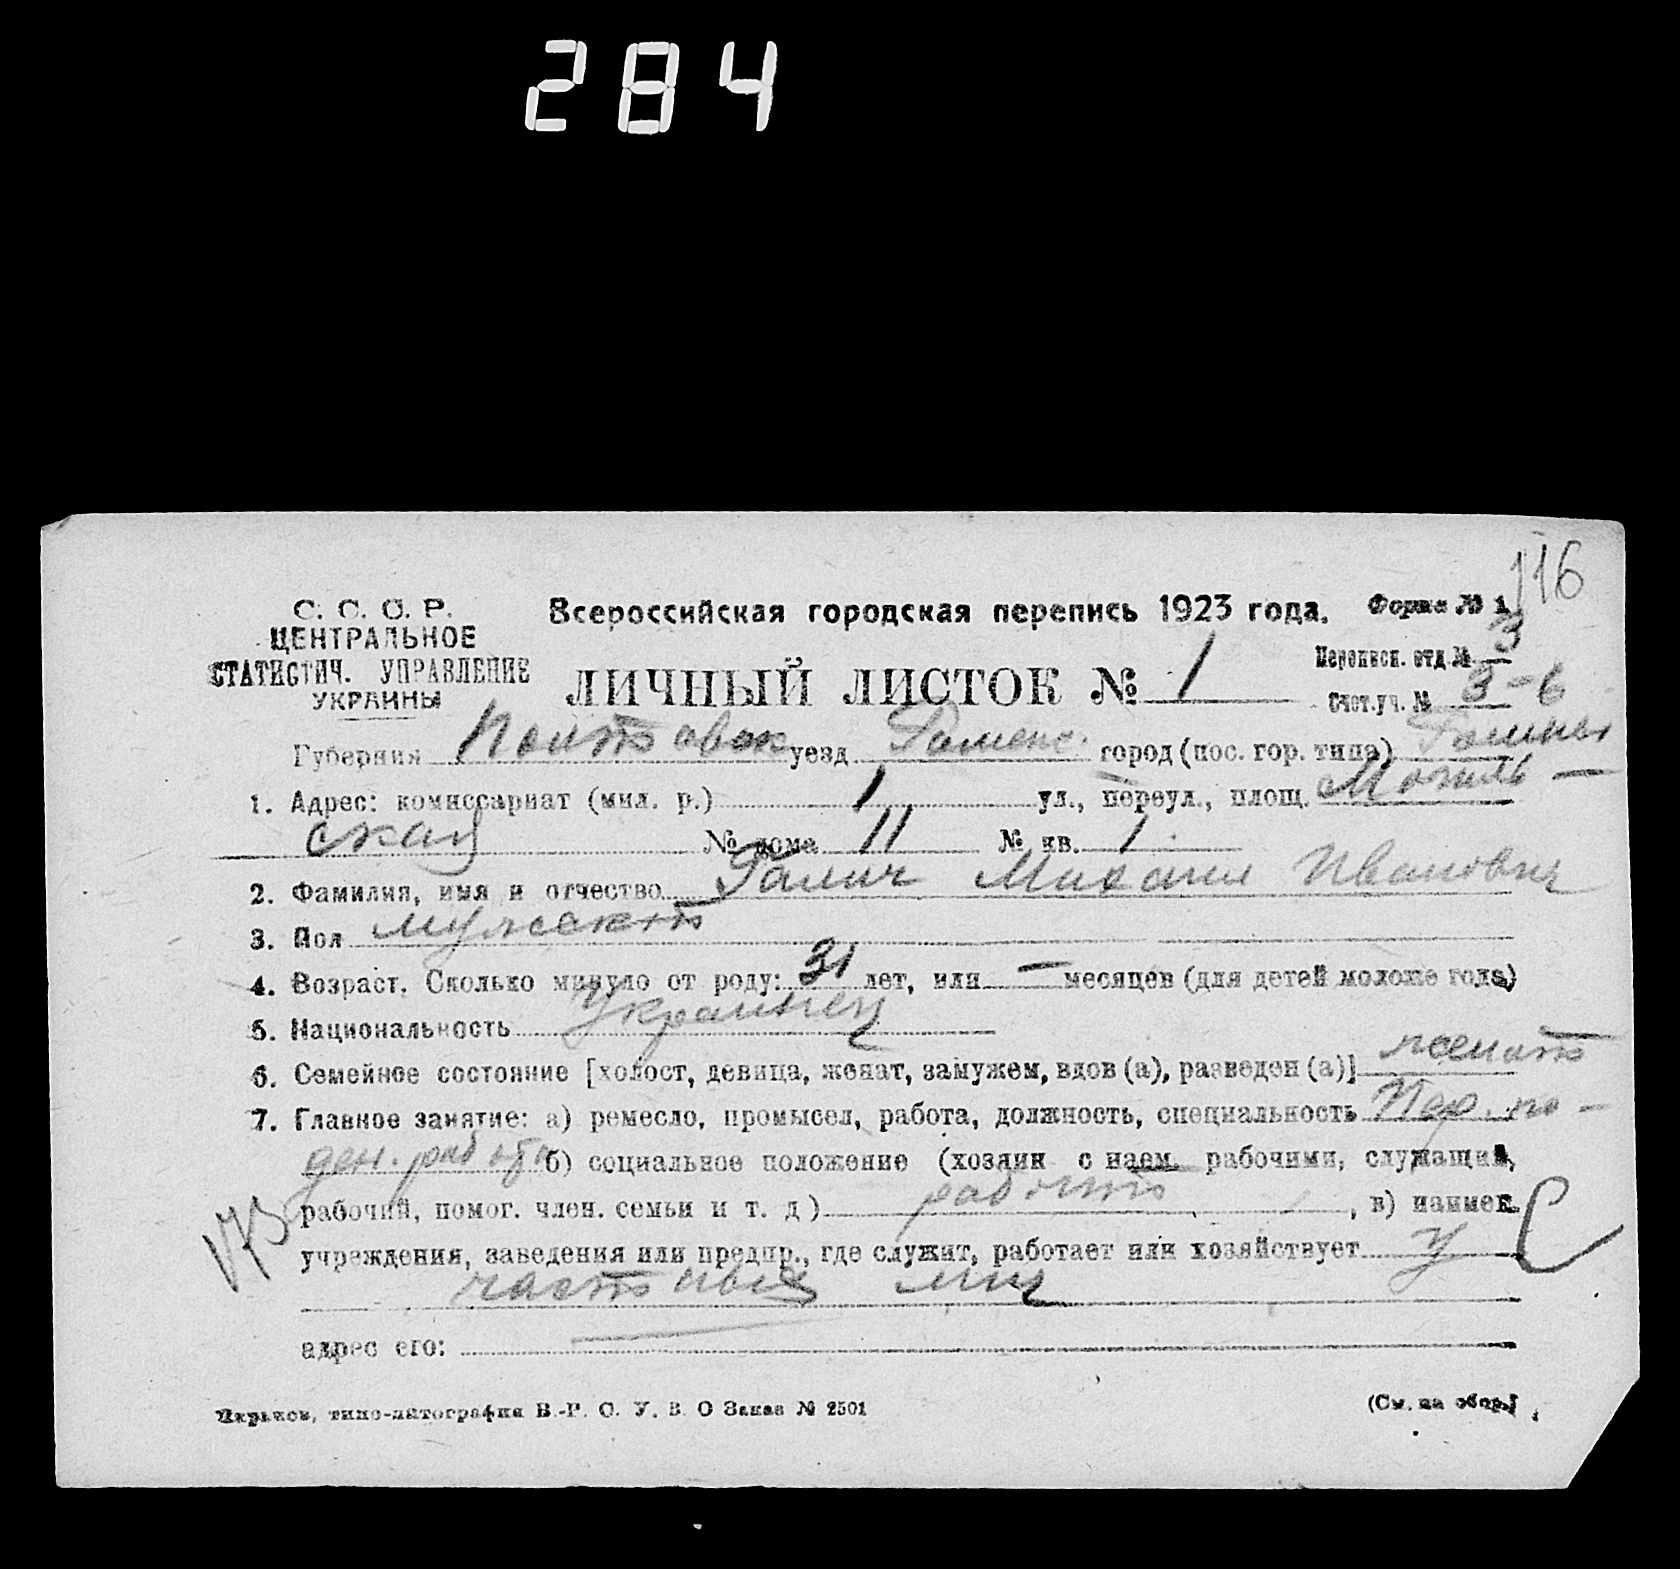 284
116
С. С. С. Р.
ЦЕНТРАЛЬНОЕ
СТАТИСТИЧ. УПРАВЛЕНИЕ
УКРАИНЫ
Всероссийская городская перепись 1923 года.
Форма № 1
ЛИЧНЫЙ ЛИСТОК № 1
Переписн. отд. № 3
Счет. уч. № 3-6
Губерния Полтавск уезд Роменс. город (пос. гор. типа) Ромны
1. Адрес: комиссариат (мил. р.) 1 ул., переул., площ.
ская № дома 11 № кв. 1
2. Фамилия, имя и отчество Галич Михаил Иванович
3. Пол мужской
4. Возраст. Сколько минуло от роду: 31 лет, или — месяцев (для детей моложе года)
5. Национальность Украинец
6. Семейное состояние [холост, девица, женат, замужем, вдов (а), разведен (а)] женат
7. Главное занятие: а) ремесло, промысел, работа, должность, специальность по-
ден. работа б) социальное положение (хозяин с наем. рабочими, служащий,
рабочий, помог. член. семьи и т. д) , в) наимен.
учреждения, заведения или предпр., где служит, работает или хозяйствует у
частных лиц
адрес его:
173
С
Харьков, типо-литография В.-Р. С. У. В. О Заказ № 2501
(См. на обор.)